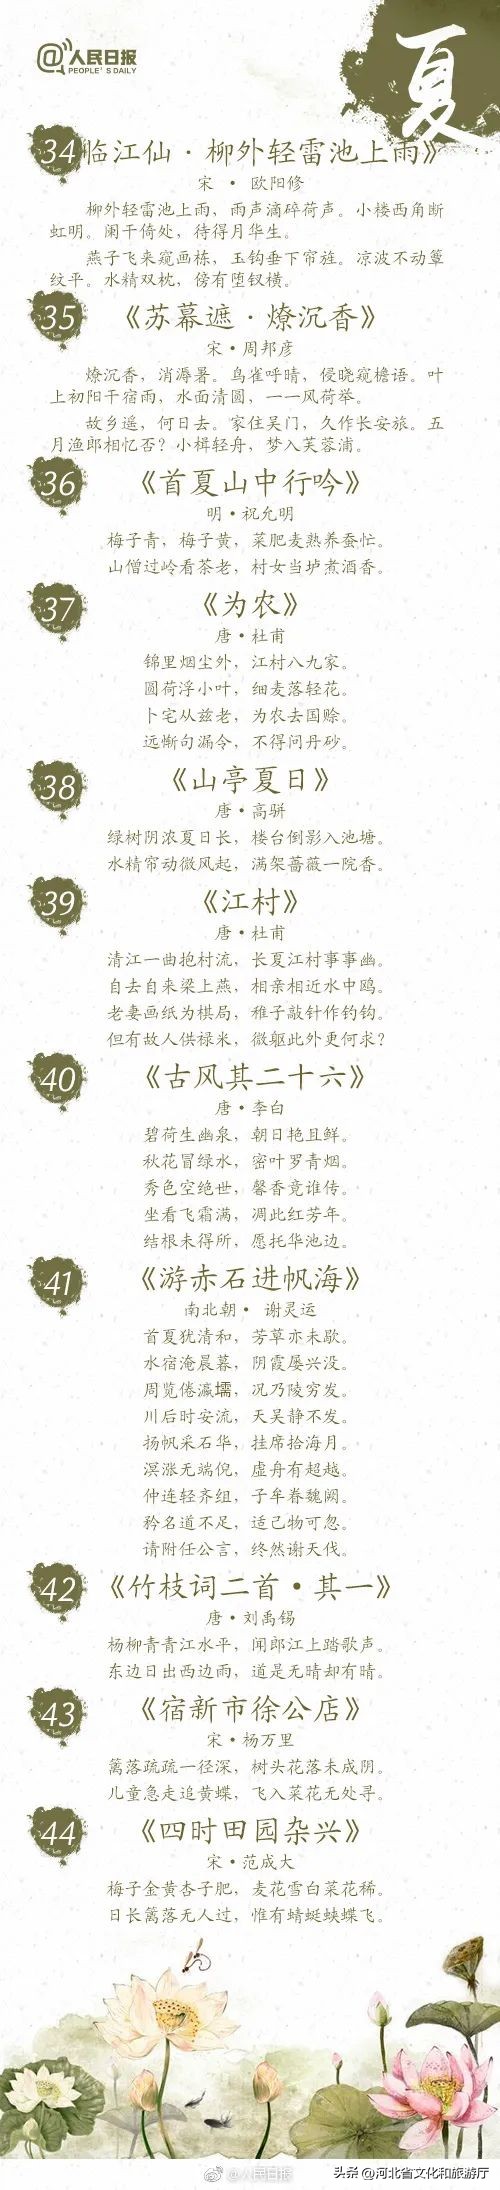 @人民日报
PEOPLE'S DAILY
夏
34 临江仙·柳外轻雷池上雨》
宋 · 欧阳修
柳外轻雷池上雨，雨声滴碎荷声。小楼西角断
虹明。阑干倚处，待得月华生。
燕子飞来窥画栋，玉钩垂下帘旌。凉波不动簟
纹平。水精双枕，傍有堕钗横。
35 《苏幕遮·燎沉香》
宋·周邦彦
燎沉香，消溽暑。鸟雀呼晴，侵晓窥檐语。叶
上初阳干宿雨，水面清圆，一一风荷举。
故乡遥，何日去。家住吴门，久作长安旅。五
月渔郎相忆否？小楫轻舟，梦入芙蓉浦。
36 《首夏山中行吟》
明·祝允明
梅子青，梅子黄，菜肥麦熟养蚕忙。
山僧过岭看茶老，村女当垆煮酒香。
37 《为农》
唐·杜甫
锦里烟尘外，江村八九家。
圆荷浮小叶，细麦落轻花。
卜宅从兹老，为农去国赊。
远惭句漏令，不得问丹砂。
38 《山亭夏日》
唐·高骈
绿树阴浓夏日长，楼台倒影入池塘。
水精帘动微风起，满架蔷薇一院香。
39 《江村》
唐·杜甫
清江一曲抱村流，长夏江村事事幽。
自去自来梁上燕，相亲相近水中鸥。
老妻画纸为棋局，稚子敲针作钓钩。
但有故人供禄米，微躯此外更何求？
40 《古风其二十六》
唐·李白
碧荷生幽泉，朝日艳且鲜。
秋花冒绿水，密叶罗青烟。
秀色空绝世，馨香竟谁传。
坐看飞霜满，凋此红芳年。
结根未得所，愿托华池边。
41 《游赤石进帆海》
南北朝· 谢灵运
首夏犹清和，芳草亦未歇。
水宿淹晨暮，阴霞屡兴没。
周览倦瀛壖，况乃陵穷发。
川后时安流，天吴静不发。
扬帆采石华，挂席拾海月。
溟涨无端倪，虚舟有超越。
仲连轻齐组，子牟眷魏阙。
矜名道不足，适己物可忽。
请附任公言，终然谢天伐。
42 《竹枝词二首·其一》
唐·刘禹锡
杨柳青青江水平，闻郎江上踏歌声。
东边日出西边雨，道是无晴却有晴。
43 《宿新市徐公店》
宋·杨万里
篱落疏疏一径深，树头花落未成阴。
儿童急走追黄蝶，飞入菜花无处寻。
44 《四时田园杂兴》
宋·范成大
梅子金黄杏子肥，麦花雪白菜花稀。
日长篱落无人过，惟有蜻蜓蛱蝶飞。
@人民日报
头条 @河北省文化和旅游厅